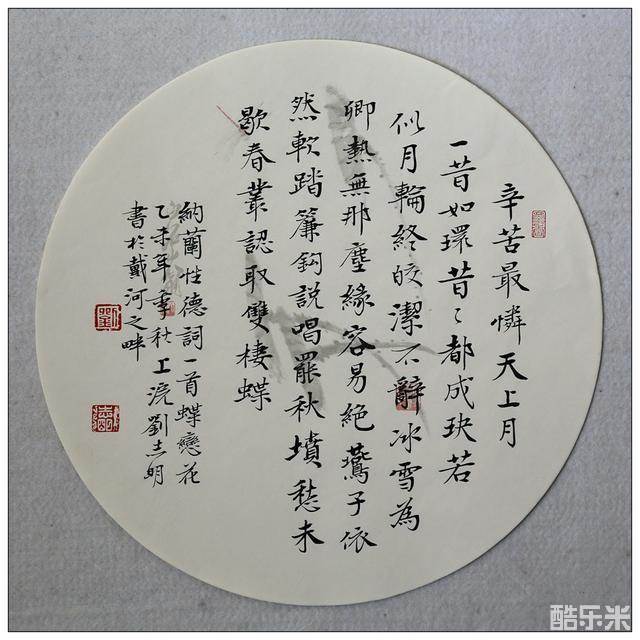 辛苦最憐天上月
一昔如環昔〻都成玦若
似月輪終皎潔不辭冰雪為
卿熱無那塵緣容易絶鷰子依
然軟踏簾鈎說唱罷秋墳愁未
歇春叢認取雙棲蝶
納蘭性德詞一首蝶戀花
乙未年季秋上浣劉志明
書於戴河之畔
酷乐米